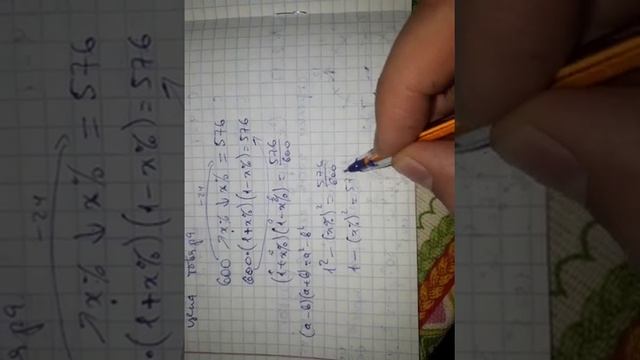 цена товара
-24
600 ↗x% ↓x% = 576
600·(1+x%)(1-x%)=576
(1+x%)(1-x%) = 576/600
(a-b)(a+b)=a²-b²
1² - (x%)² = 576/600
1 - (x%)² = 57